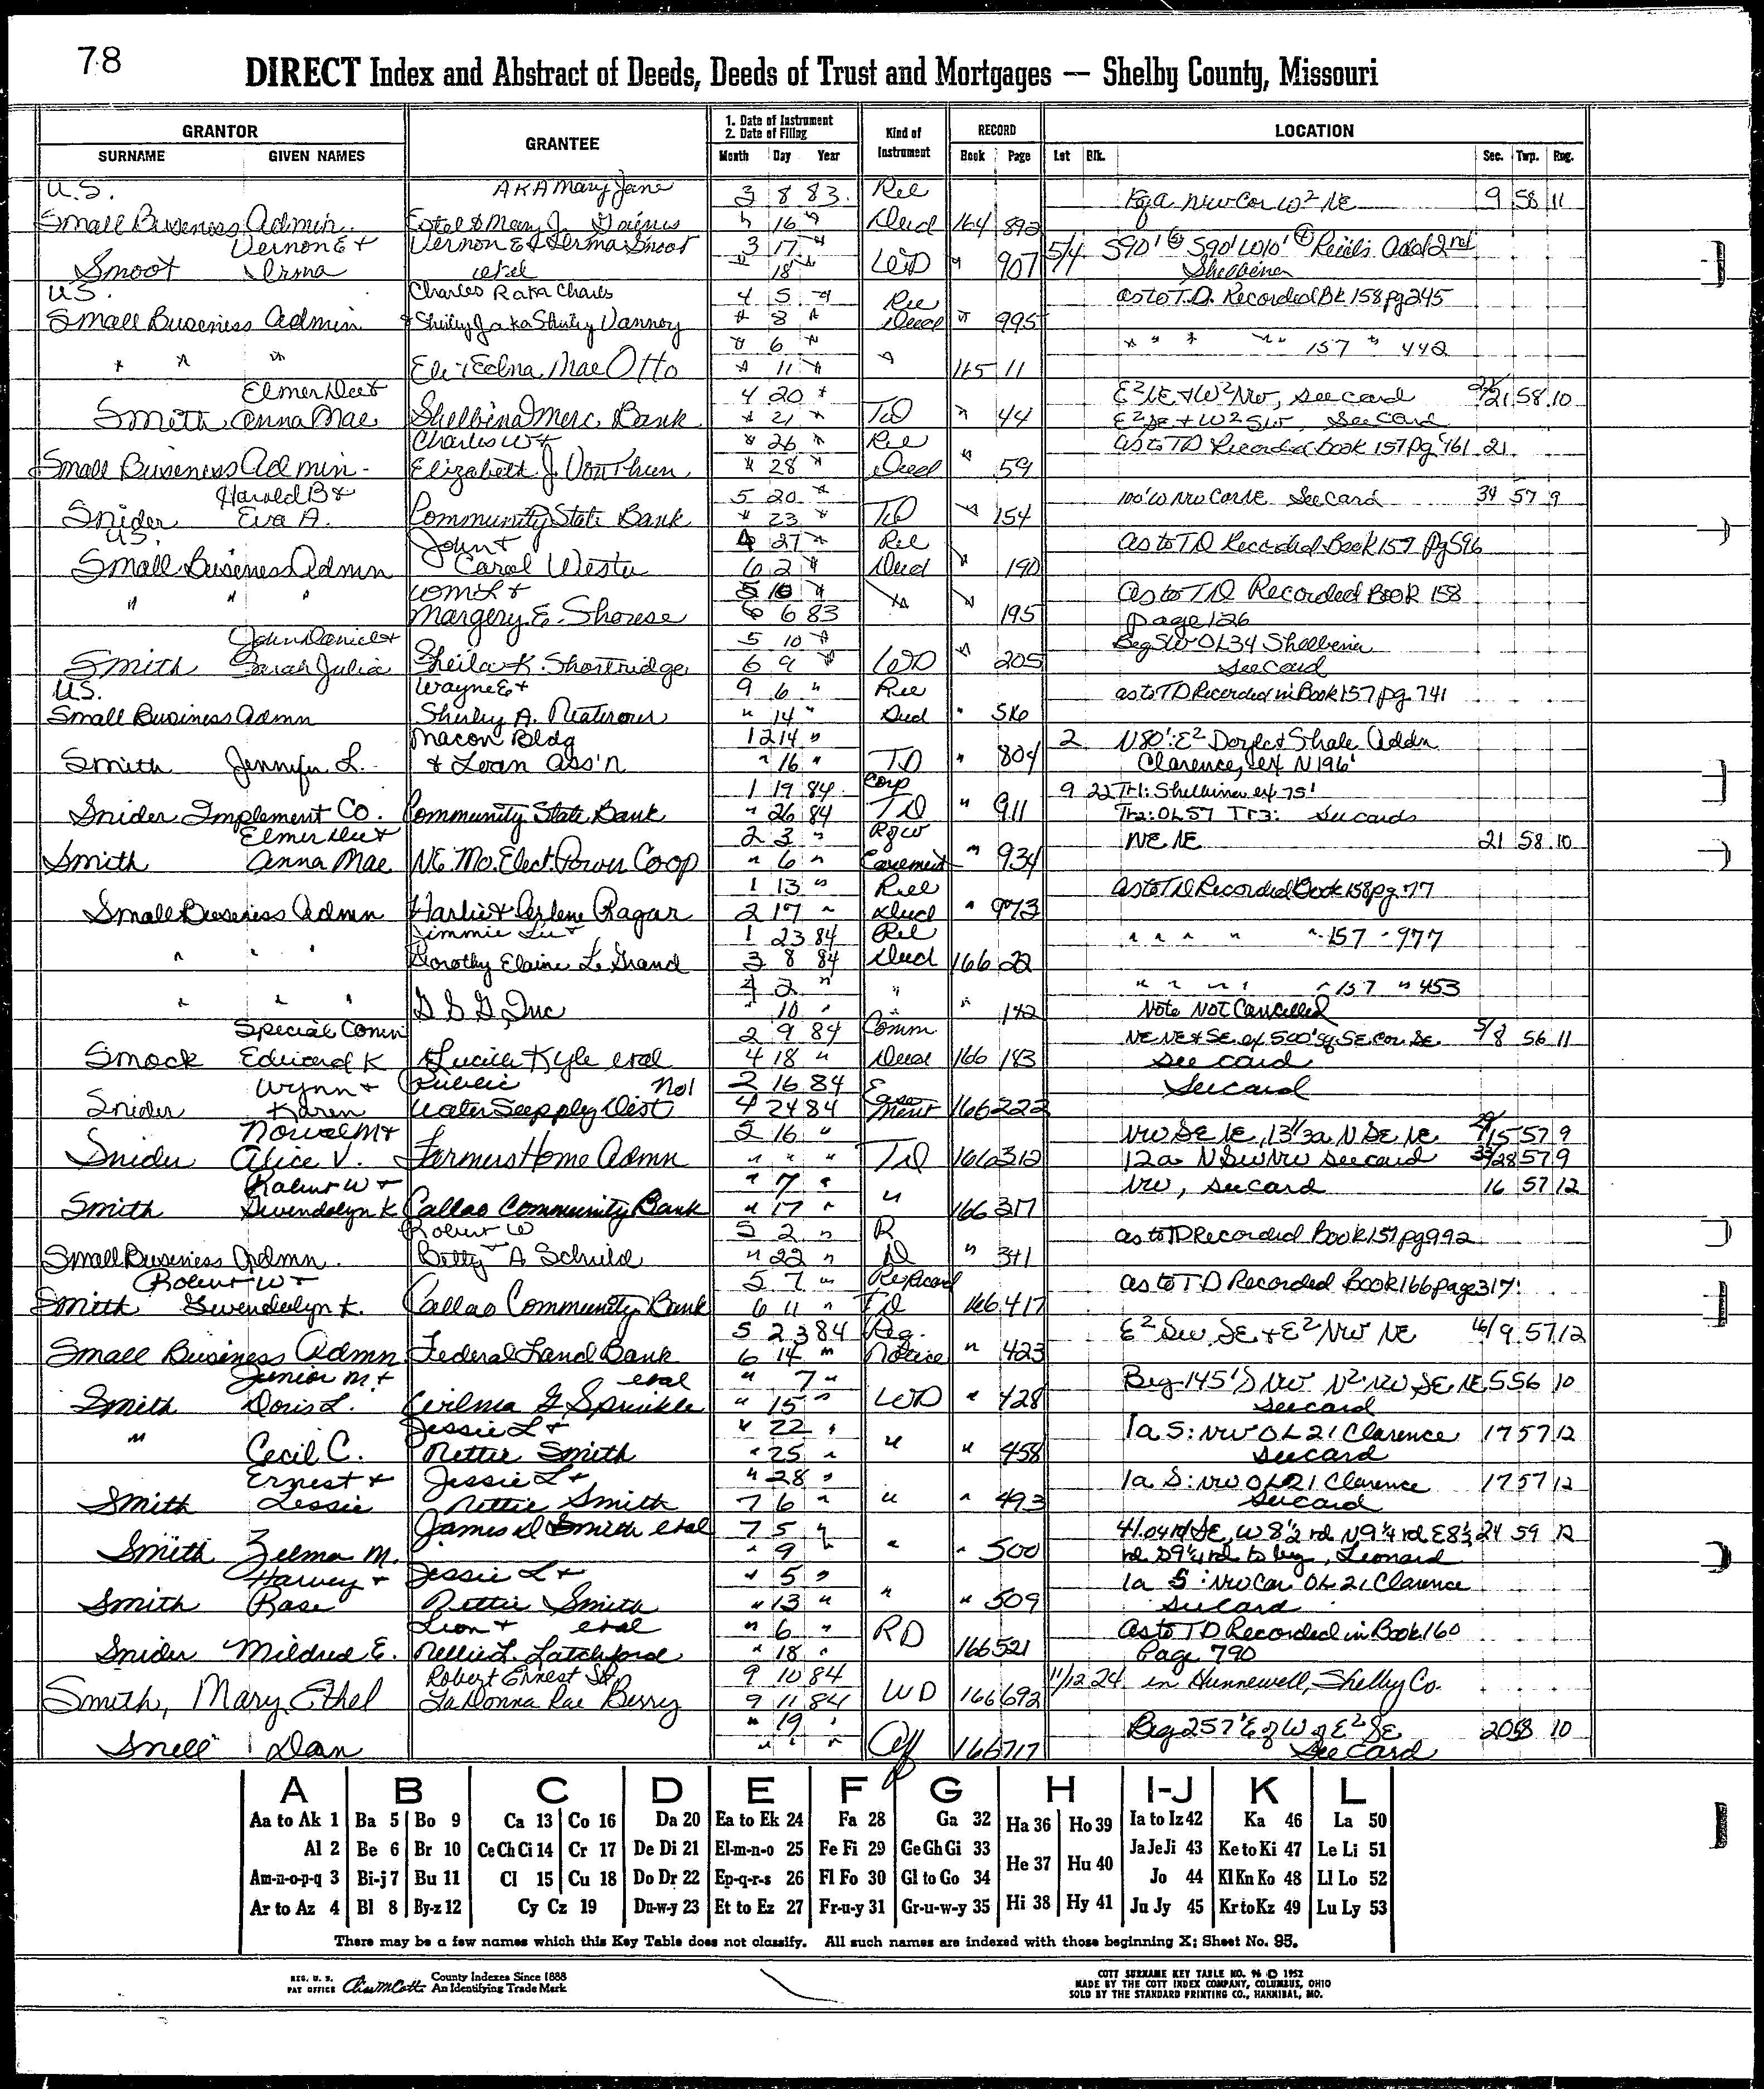 78
DIRECT Index and Abstract of Deeds, Deeds of Trust and Mortgages — Shelby County, Missouri
GRANTOR GRANTEE 1. Date of Instrument 2. Date of Filing Kind of Instrument RECORD LOCATION
SURNAME GIVEN NAMES Month Day Year Book Page Lot Blk. Sec. Twp. Rng.
U.S. AKA Mary Jane 3 8 83 Rel NW Cor W² NE 9 58 11
Small Business Admin. Estel & Mary J. " 16 " Deed 164 892
Vernon E & Vernon E & Irma Smoot 3 17 " 5/4 S90' S90' W10' Add 2nd
Smoot Irma etal " 18 " WD " 907 Shelbina
U.S. Charles R aka Charles 4 5 " Rel as to T.D. Recorded Bk 158 pg 245
Small Business Admin & Shirley J aka Shirley Vannoy " 8 " Deed " 995
" 6 " " " " " " 157 " 442
" " " Eli & Edna Mae Otto " 11 " " 165 11
Elmer Dee & 4 20 " E² NE & W² NW, see card 21 58 10
Smith Anna Mae Shelbina Merc. Bank " 21 " TD " 44 E² SE & W² SW, see card
Charles W & " 26 " Rel as to TD Recorded Book 157 pg 461 21
Small Business Admin. Elizabeth J. Von Thun " 28 " Deed " 59
Harold B & 5 20 " 100' W NW Cor NE See Card 34 57 9
Snider Eva A. Community State Bank " 23 " TD " 154
U.S. John & 4 27 " Rel as to TD Recorded Book 159 Pg 596
Small Business Admn Carol Wester 6 2 " Deed " 190
Wm L & 5 10 " as to TD Recorded Book 158
" " " Margery E. Shouse 6 6 83 " " 195 page 126
John Daniel & 5 10 " Beg SW OL 34 Shelbina
Smith Sarah Julia Sheila K. Shortridge 6 9 " WD " 205 see card
U.S. Wayne E & 9 6 " Rel as to TD Recorded in Book 157 pg. 741
Small Business Admn Shirley A. " 14 " Deed " 516
Macon Bldg 12 14 " 2 N80': E² Doyle & Shale Addn
Smith Jennifer L. & Loan Ass'n " 16 " TD " 804 Clarence, ex N196'
1 19 84 Corp 9 22 Tr1: Shelbina ex 75'
Snider Implement Co. Community State Bank " 26 84 TD " 911 Tr2: OL 57 Tr3: See cards
Elmer Dee & 2 3 " R of W NE NE 21 58 10
Smith Anna Mae NE Mo. Elect. Power Coop " 6 " Easement " 934
1 13 " Rel as to TD Recorded Book 158 pg 77
Small Business Admn Harlie & Arlene Ragar 2 17 " Deed " 973
Jimmie Lee & 1 23 84 Rel " " " " " 157 " 977
" " " Dorothy Elaine LeGrand 3 8 84 Deed 166 22
4 2 " " " " " " 157 " 453
" " " G S G, Inc " 10 " " " 142 Note Not Cancelled
Special Comm 2 9 84 Comm NE NE & SE ex 500' sq SE Cor SE 5/8 56 11
Smock Edward K Lucille Kyle etal 4 18 " Deed 166 183 see card
Wynn & Public No 1 2 16 84 Ease See card
Snider Karen Water Supply Dist 4 24 84 ment 166 222
Norval M & 5 16 " NW SE NE, 13 1/3a N SE NE 15 57 9
Snider Alice V. Farmers Home Admn " " " TD 166 312 12a N SW NW see card 28 57 9
Robert W & " 7 " NW, see card 16 57 12
Smith Gwendolyn K Callao Community Bank " 17 " " 166 317
Robert W 5 2 " R as to TD Recorded Book 157 pg 992
Small Business Admn. Betty A Schuld " 22 " D " 341
Robert W & 5 7 " Re Record as to T-D Recorded Book 166 page 317.
Smith Gwendolyn K. Callao Community Bank 6 11 " TD 166 417
5 23 84 Reg. E² SW SE & E² NW NE 16/9 57 12
Small Business Admn Federal Land Bank 6 14 " Notice " 423
Junior M. & etal " 7 " Beg 145' S NW N² NW SE NE 5 56 10
Smith Doris L. G Sprinkle " 15 " WD " 428 see card
Jessie L & " 22 " 1a S: NW OL 21 Clarence 17 57 12
" Cecil C. Nettie Smith " 25 " " " 458 see card
Ernest & Jessie L & " 28 " 1a S: NW OL 21 Clarence 17 57 12
Smith Lessie Nettie Smith 7 6 " " " 493 see card
James D Smith etal 7 5 " 41.04 rd SE, W 8½ rd N9¼ rd E 8½ 24 59 12
Smith Zelma M. " 9 " " " 500 rd S9¼ rd to beg, Leonard
Harvey & Jessie L & " 5 " 1a S: NW Cor OL 21 Clarence
Smith Rose Nettie Smith " 13 " " " 509 see card
Leon & etal " 6 " RD as to TD Recorded in Book 160
Snider Mildred E. Nellie L. Latchford " 18 " 166 521 Page 790
Robert Ernest 9 10 84 11/12 24 in Hunnewell, Shelby Co.
Smith, Mary Ethel LaDonna Rae Berry 9 11 84 WD 166 692
" 19 " Beg 257' E of W of E² SE 20 58 10
Snell Dan " " " Aff 166 717 See Card
A B C D E F G H I-J K L
Aa to Ak 1 Ba 5 Bo 9 Ca 13 Co 16 Da 20 Ea to Ek 24 Fa 28 Ga 32 Ha 36 Ho 39 Ia to Iz 42 Ka 46 La 50
Al 2 Be 6 Br 10 Ce Ch Ci 14 Cr 17 De Di 21 El-m-n-o 25 Fe Fi 29 Ge Gh Gi 33 He 37 Hu 40 Ja Je Ji 43 Ke to Ki 47 Le Li 51
Am-n-o-p-q 3 Bi-j 7 Bu 11 Cl 15 Cu 18 Do Dr 22 Ep-q-r-s 26 Fl Fo 30 Gl to Go 34 Jo 44 Kl Kn Ko 48 Ll Lo 52
Ar to Az 4 Bl 8 By-z 12 Cy Cz 19 Du-w-y 23 Et to Ez 27 Fr-u-y 31 Gr-u-w-y 35 Hi 38 Hy 41 Ju Jy 45 Kr to Kz 49 Lu Ly 53
There may be a few names which this Key Table does not classify. All such names are indexed with those beginning X; Sheet No. 95.
REG. U. S. PAT OFFICE County Indexes Since 1888 An Identifying Trade Mark
COTT SURNAME KEY TABLE NO. 96 © 1952
MADE BY THE COTT INDEX COMPANY, COLUMBUS, OHIO
SOLD BY THE STANDARD PRINTING CO., HANNIBAL, MO.